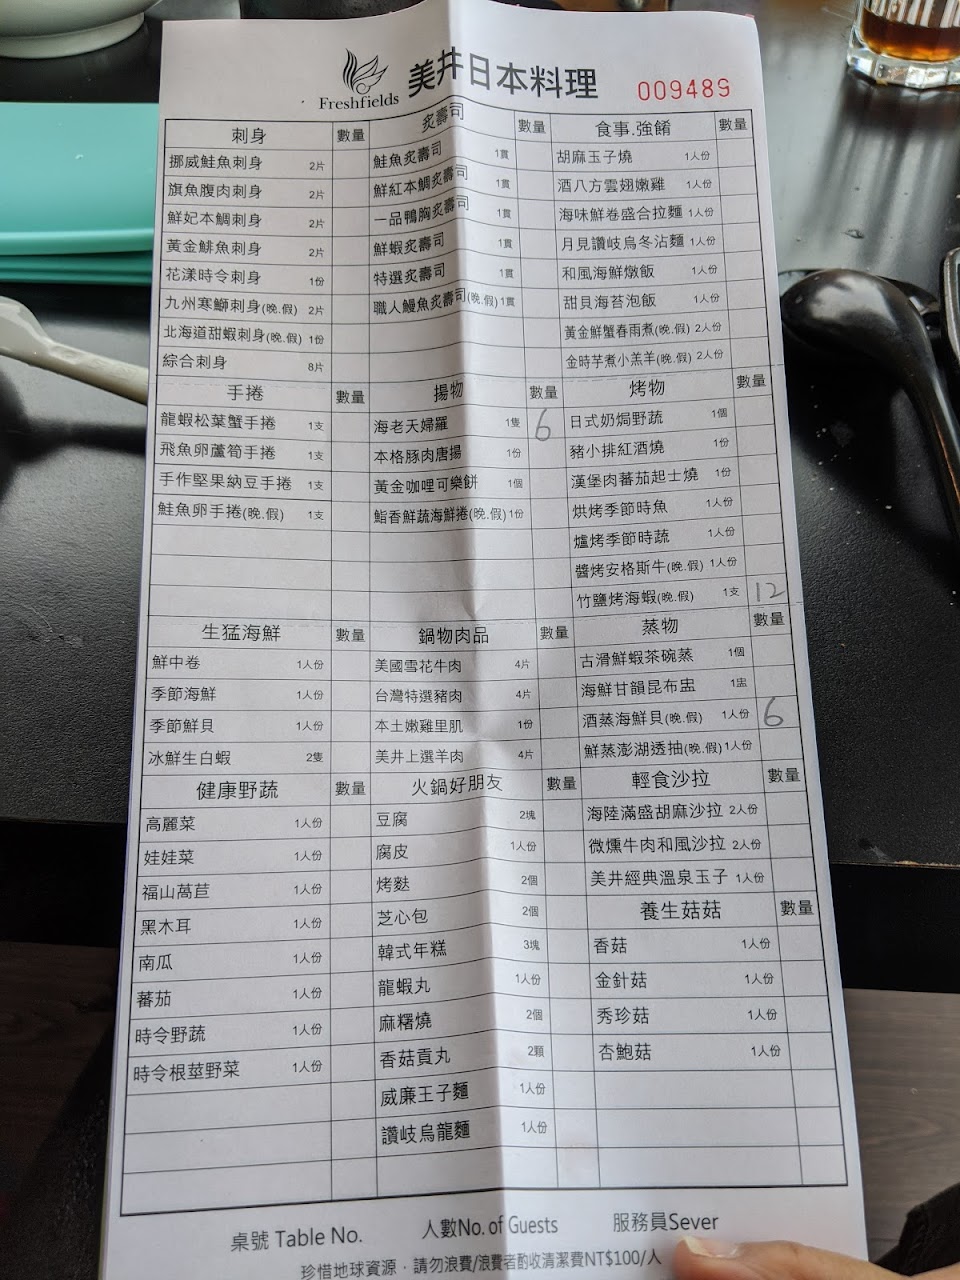 Freshfields 美井日本料理 009489
刺身 數量 炙壽司 數量 食事.強餚 數量
挪威鮭魚刺身 2片 鮭魚炙壽司 1貫 胡麻玉子燒 1人份
旗魚腹肉刺身 2片 鮮紅本鯛炙壽司 1貫 酒八方雲翅嫩雞 1人份
鮮妃本鯛刺身 2片 一品鴨胸炙壽司 1貫 海味鮮卷盛合拉麵 1人份
黃金鯡魚刺身 2片 鮮蝦炙壽司 1貫 月見讚岐烏冬沾麵 1人份
花漾時令刺身 1份 特選炙壽司 1貫 和風海鮮燉飯 1人份
九州寒鰤刺身(晚.假) 2片 職人鰻魚炙壽司(晚.假) 1貫 甜貝海苔泡飯 1人份
北海道甜蝦刺身(晚.假) 1份 黃金鮮蟹春雨煮(晚.假) 2人份
綜合刺身 8片 金時芋煮小羔羊(晚.假) 2人份
手捲 數量 揚物 數量 烤物 數量
龍蝦松葉蟹手捲 1支 海老天婦羅 1隻 6 日式奶焗野蔬 1個
飛魚卵蘆筍手捲 1支 本格豚肉唐揚 1份 豬小排紅酒燒 1份
手作堅果納豆手捲 1支 黃金咖哩可樂餅 1個 漢堡肉蕃茄起士燒 1份
鮭魚卵手捲(晚.假) 1支 鮨香鮮蔬海鮮捲(晚.假) 1份 烘烤季節時魚 1人份
爐烤季節時蔬 1人份
醬烤安格斯牛(晚.假) 1人份
竹鹽烤海蝦(晚.假) 1支 12
生猛海鮮 數量 鍋物肉品 數量 蒸物 數量
鮮中卷 1人份 美國雪花牛肉 4片 古滑鮮蝦茶碗蒸 1個
季節海鮮 1人份 台灣特選豬肉 4片 海鮮甘韻昆布盅 1盅
季節鮮貝 1人份 本土嫩雞里肌 1份 酒蒸海鮮貝(晚.假) 1人份 6
冰鮮生白蝦 2隻 美井上選羊肉 4片 鮮蒸澎湖透抽(晚.假) 1人份
健康野蔬 數量 火鍋好朋友 數量 輕食沙拉 數量
高麗菜 1人份 豆腐 2塊 海陸滿盛胡麻沙拉 2人份
娃娃菜 1人份 腐皮 1人份 微燻牛肉和風沙拉 2人份
福山萵苣 1人份 烤麩 2個 美井經典溫泉玉子 1人份
黑木耳 1人份 芝心包 2個 養生菇菇 數量
南瓜 1人份 韓式年糕 3塊 香菇 1人份
蕃茄 1人份 龍蝦丸 1人份 金針菇 1人份
時令野蔬 1人份 麻糬燒 2個 秀珍菇 1人份
時令根莖野菜 1人份 香菇貢丸 2顆 杏鮑菇 1人份
威廉王子麵 1人份
讚岐烏龍麵 1人份
桌號 Table No. 人數No. of Guests 服務員Sever
珍惜地球資源．請勿浪費/浪費者酌收清潔費NT$100/人